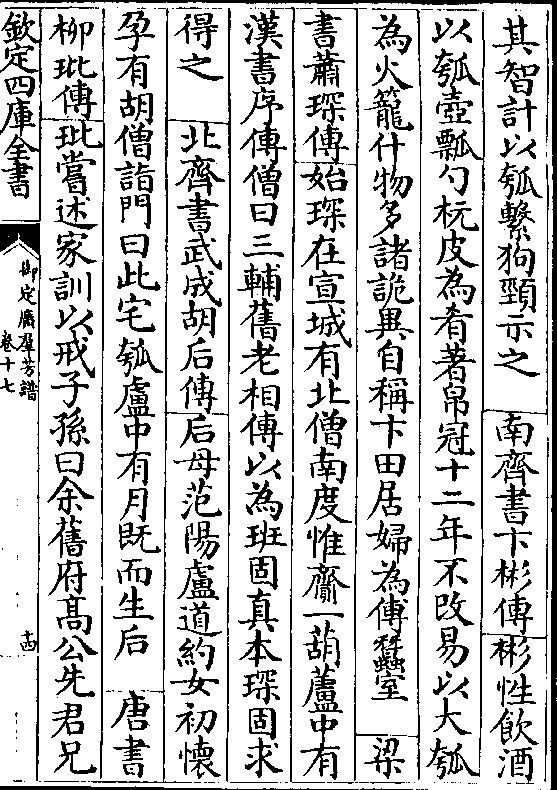 其智計以瓠繫狗頸示之　南齊書卞彬傳彬性飲酒
以瓠壺瓢勺杬皮為肴著帛冠十二年不改易以大瓠
為火籠什物多諸詭異自稱卞田居婦為傅蠶室　梁
書蕭琛傳始琛在宣城有北僧南度惟齎一葫蘆中有
漢書序傳僧曰三輔舊老相傳以為班固真本琛固求
得之　北齊書武成胡后傳后母范陽盧道約女初懷
孕有胡僧詣門曰此宅瓠盧中有月既而生后　唐書
柳玭傳玭嘗述家訓以戒子孫曰余舊府高公先君兄
欽定四庫全書
御定廣羣芳譜
卷十七
十四